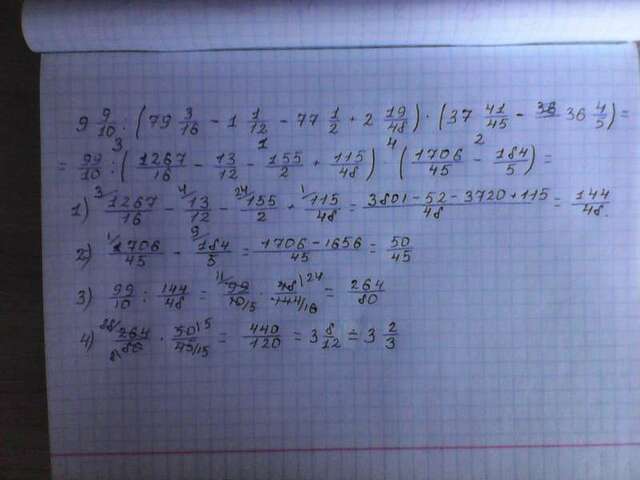 9 9/10 : (79 3/16 - 1 1/12 - 77 1/2 + 2 19/48) · (37 41/45 - 36 4/5) =
3 1 4 2
= 99/10 : (1267/16 - 13/12 - 155/2 + 115/48) (1706/45 - 184/5) =
1) 3/ 1267/16 - 4/ 13/12 - 24/ 155/2 + 1/ 115/48 = 3801-52-3720+115/48 = 144/48.
2) 1/ 1706/45 - 9/ 184/5 = 1706-1656/45 = 50/45
3) 99/10 : 144/48 = 11 99/10/5 · 48/24/144/16 = 264/80
4) 88/ 264/80 · 50/5/45/15 = 440/120 = 3 8/12 = 3 2/3